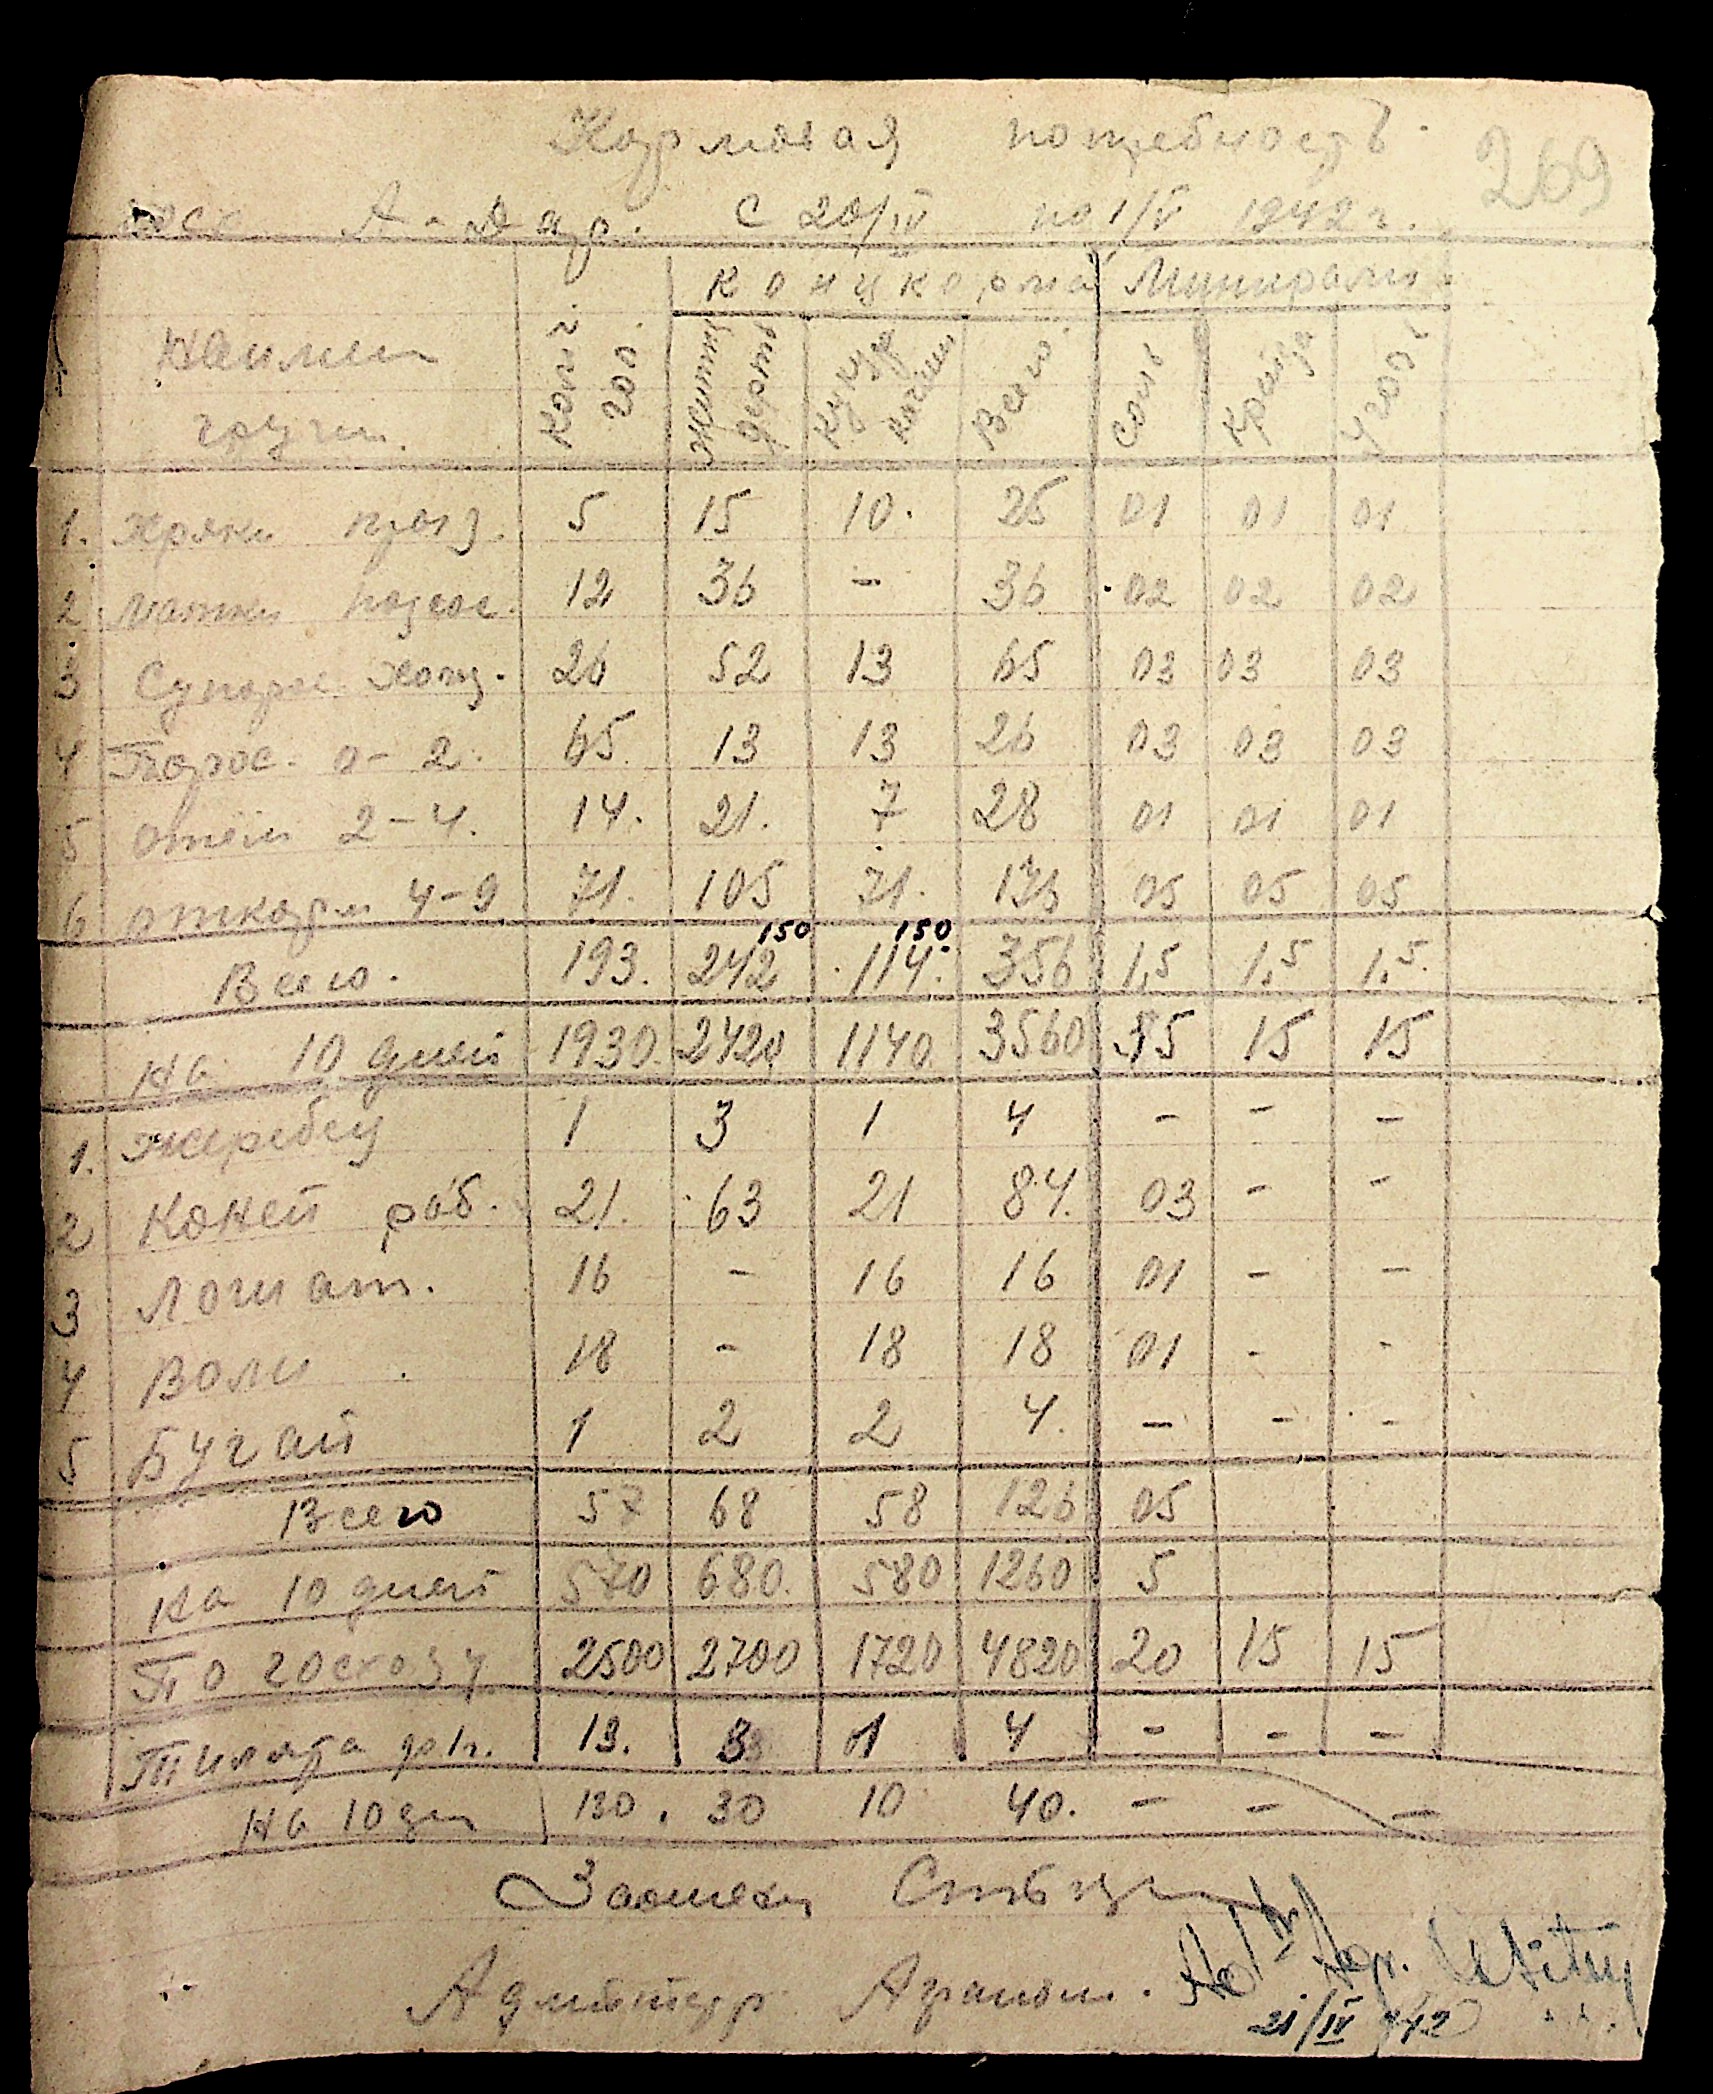 Кормовая потребность
269
А-Дар. с 20/IV по 1/V 1942 г.
Концкорма Минирали
Наимен групи. Кол-ч гол. Житня дерть Кукуру Всего Соль Крейда Угол
1. Хряки произ. 5 15 10. 25 01 01 01
2 Матки подсос. 12 36 - 36 02 02 02
3 Супорос. холод. 26 52 13 65 03 03 03
4 Порос. 0-2. 65. 13 13 26 03 03 03
5 отём 2-4. 14. 21. 7 28 01 01 01
6 откорм 4-9 71. 105 71. 05 05 05
150 150
Всего. 193. 242 114. 356 1,5 1,5 1,5.
На 10 дней 1930. 2420 1140. 3560 15 15 15
1. Жеребец 1 3 1 4 - - -
2 Коней раб. 21. 63 21 84. 03 - -
3 Лошат. 16 - 16 16 01 - -
4 Воли 18 - 18 18 01 - -
5 Бугай 1 2 2 4. - - -
Всего 57 68 58 126 05
На 10 дней 570 680. 580 1260 5
По госходу 2500 2700 1720 4820 20 15 15
Тилята 13. 3 1 4 - - -
На 10 дн 130. 30 10 40. - - -
Заотех
Агроном.
21/IV 942